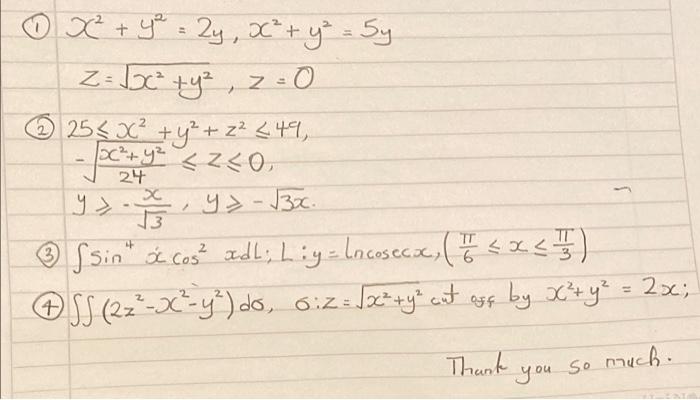 ① x² + y² = 2y, x² + y² = 5y
z = √x² + y², z = 0
② 25 ≤ x² + y² + z² ≤ 49,
-√x² + y²/24 ≤ z ≤ 0,
y ≥ -x/√3, y ≥ -√3x.
③ ∫ sin⁴ x cos² x dL; L: y = ln cosec x, (π/6 ≤ x ≤ π/3)
④ ∬ (2z² - x² - y²) dσ, σ: z = √x² + y² cut off by x² + y² = 2x;
Thank you so much.